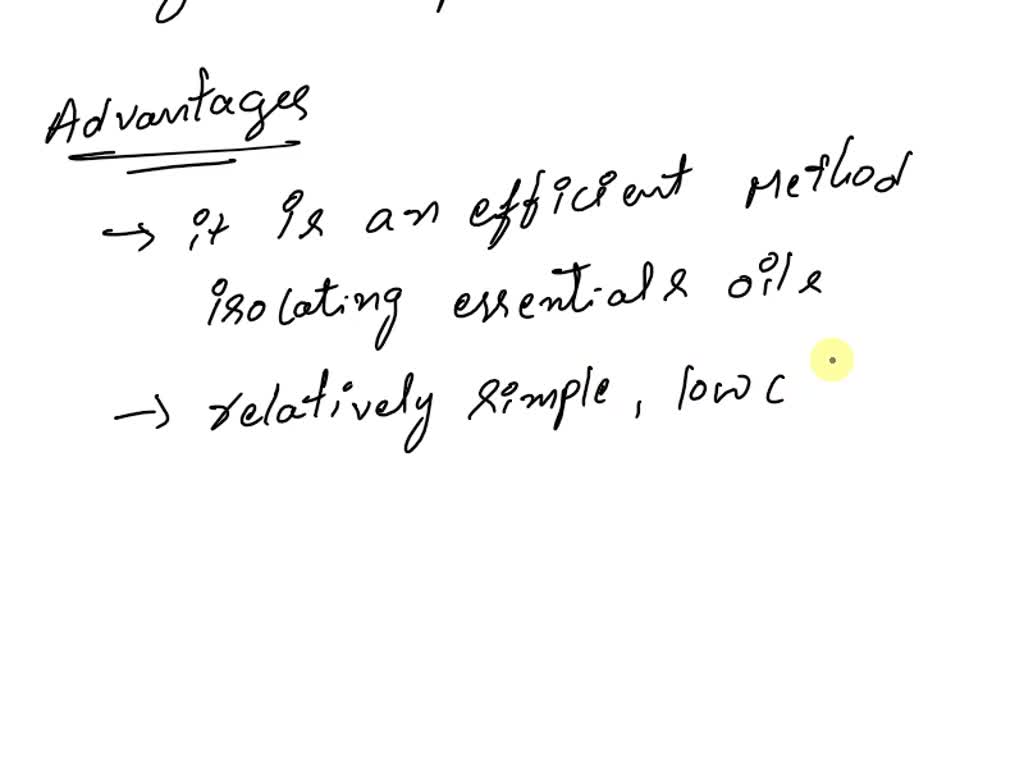 Advantages
→ it is an efficient method
isolating essentials oils
→ relatively simple, low c